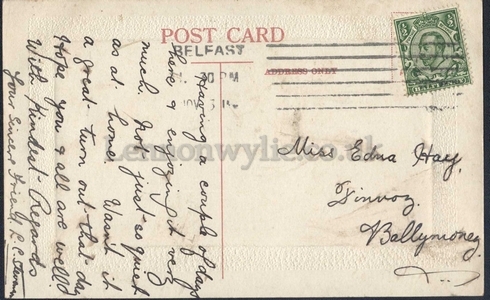 POST CARD
BELFAST
ADDRESS ONLY
Having a couple of days
here & enjoying it very
much. Not just as quiet
as at home. Wasn't it
a great turn out that day
Hope you & all are well?
With Kindest Regards
Your Sincere Friend
Miss Edna Hay,
Dinvoz,
Ballymoney.
Lennonwylie.co.uk